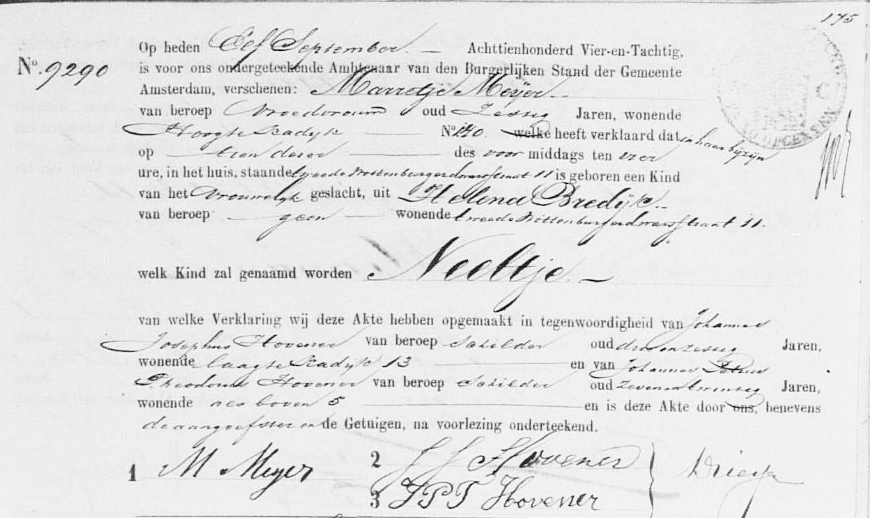 175
Nº. 9290
Op heden Elf September. – Achttienhonderd Vier-en-Tachtig,
is voor ons ondergeteekende Ambtenaar van den Burgerlijken Stand der Gemeente
Amsterdam, verschenen: Marretje Meijer
van beroep Vroedvrouw oud Zestig Jaren, wonende
Hoogte Kadijk Nº. 140. welke heeft verklaard dat in haar bijzijn
op tien dezer des voor middags ten vier
ure, in het huis, staande tweede Wittenburgerdwarsstraat 11 is geboren een Kind
van het Vrouwelijk geslacht, uit Helena Bredijk
van beroep geen wonende tweede Wittenburgerdwarsstraat 11.
welk Kind zal genaamd worden Neeltje. –
van welke Verklaring wij deze Akte hebben opgemaakt in tegenwoordigheid van Johannes
Josephus Hovener van beroep Schilder oud drie en zestig Jaren,
wonende laagte Kadijk 13 en van Johannes Petrus
Theodorus Hovener van beroep Schilder oud zeven en twintig Jaren,
wonende als boven 5 en is deze Akte door ons, benevens
de aangeefster en de Getuigen, na voorlezing onderteekend.
1 M Meyer 2 J J Hovener
3 J P T Hovener